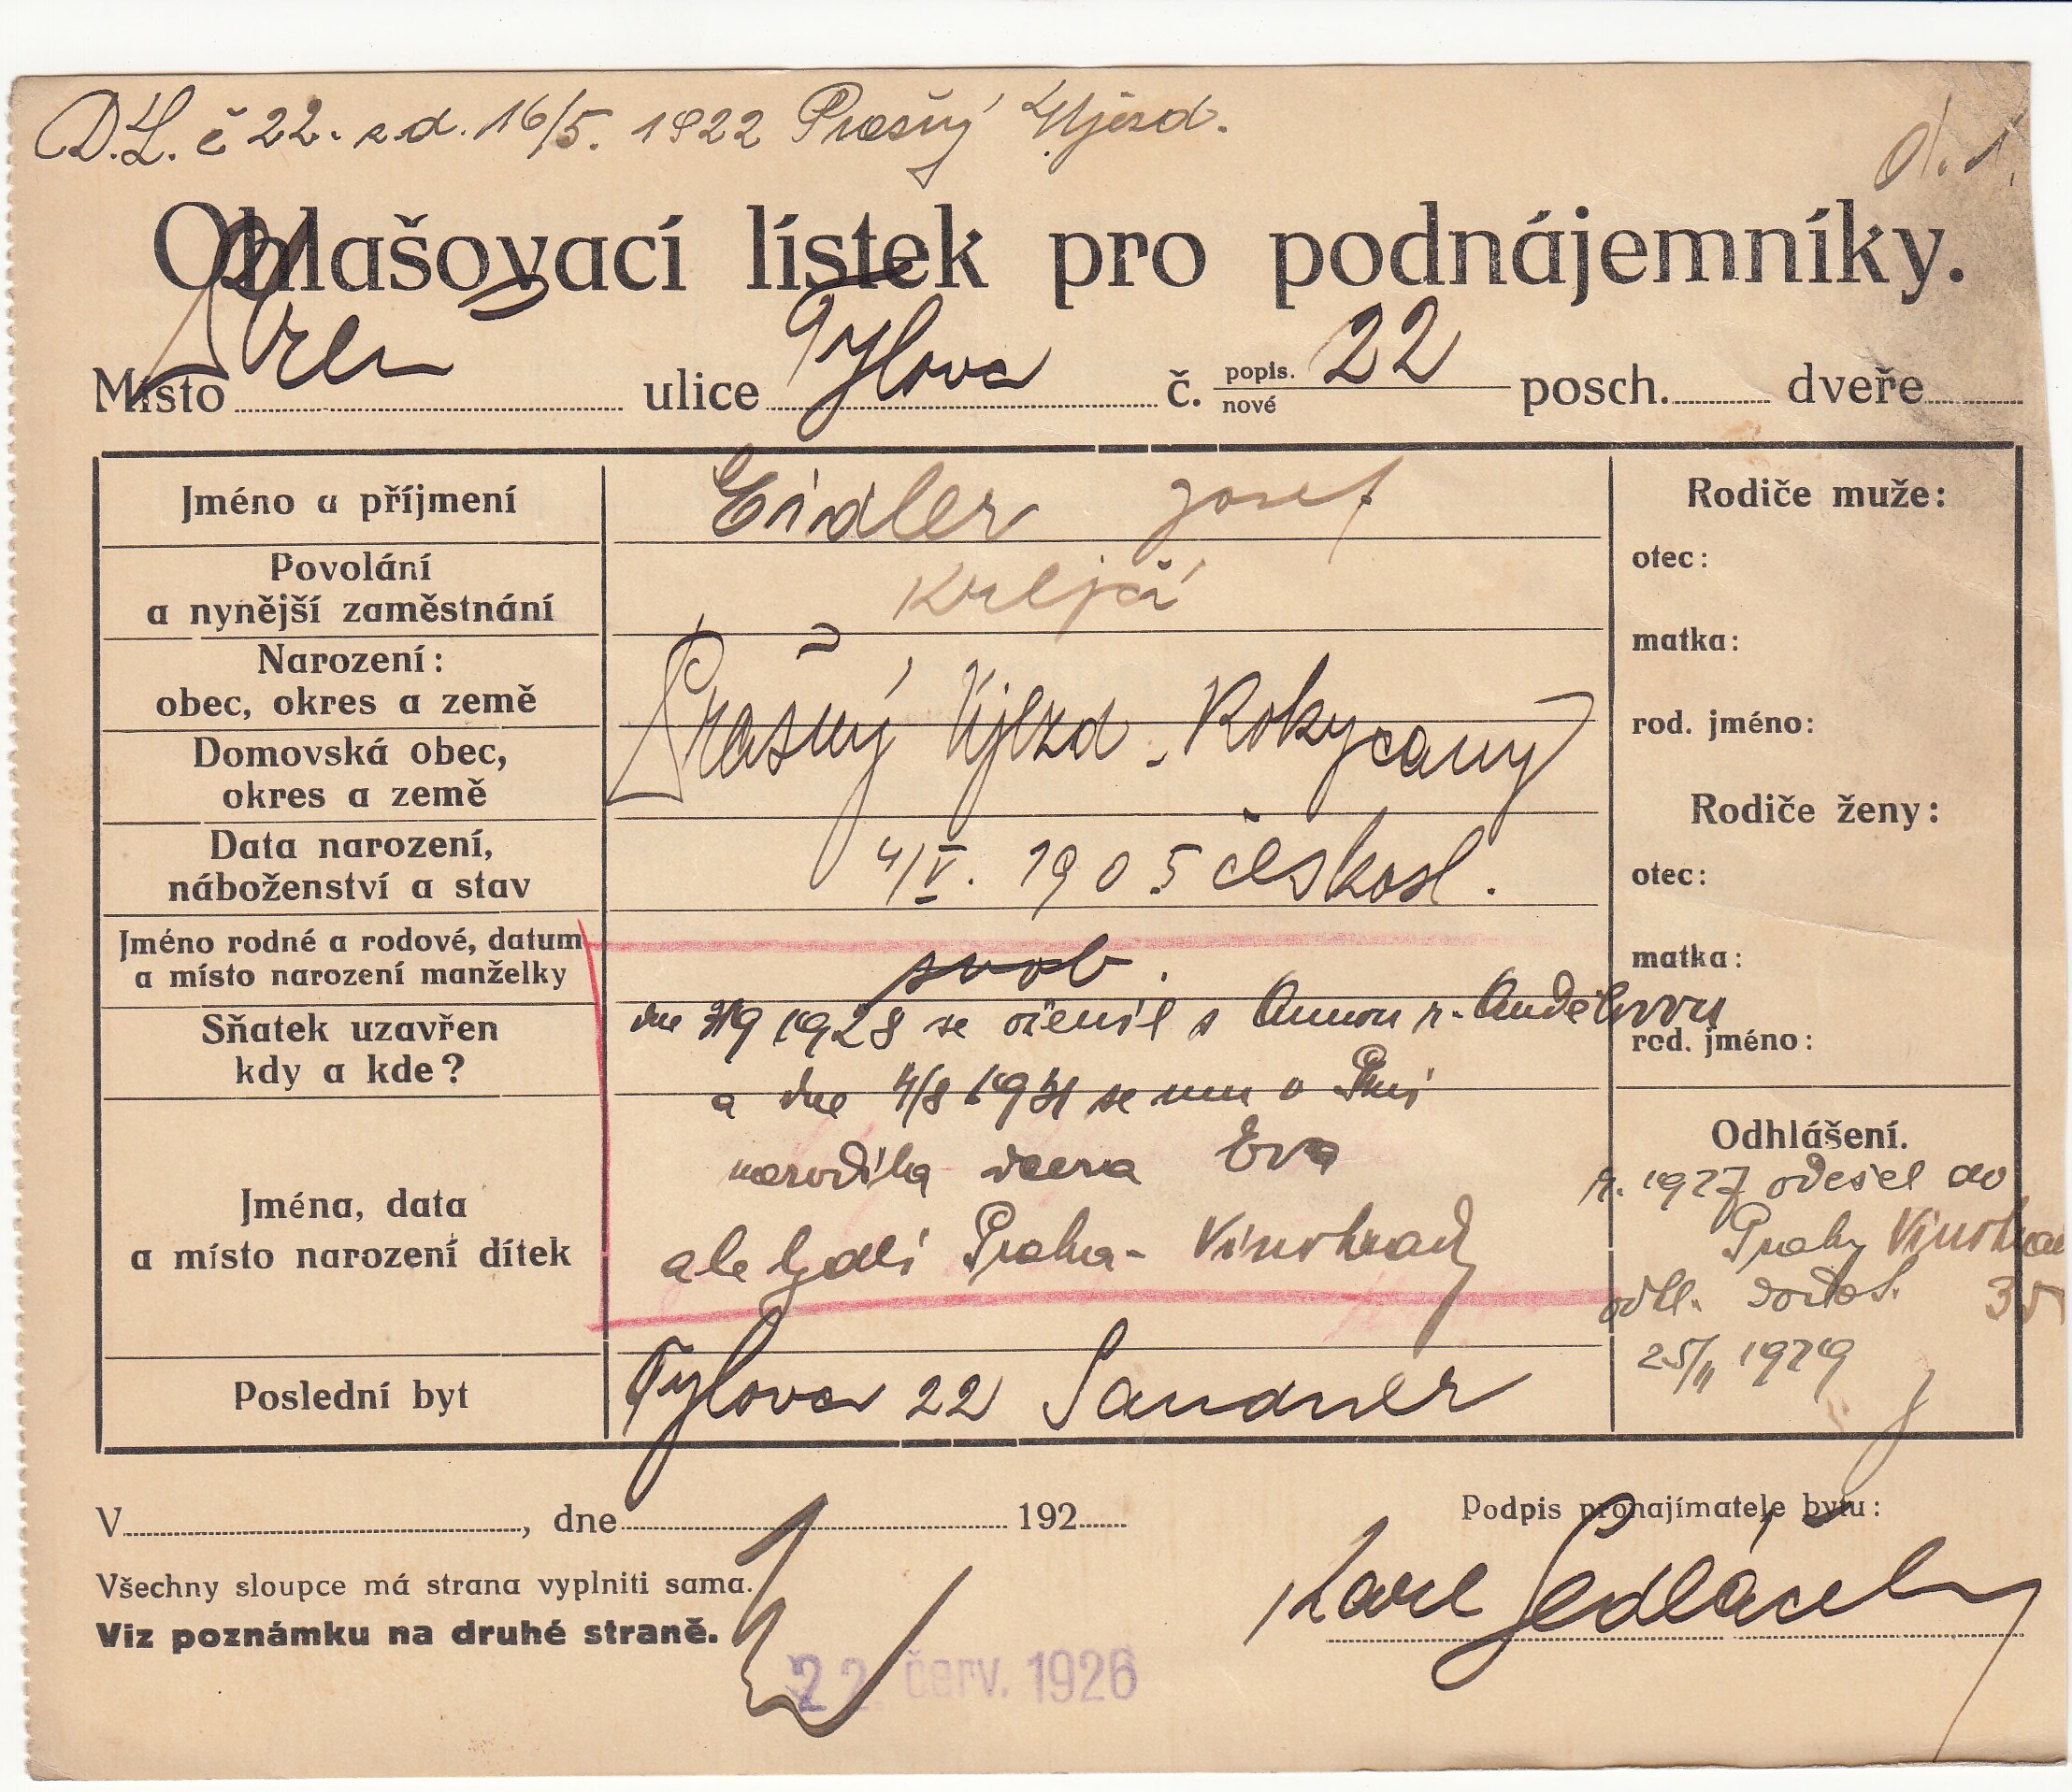 D.L. č 22. z d. 16/5. 1922 Prašný Újezd.
d. 1.
Ohlašovací lístek pro podnájemníky.
Místo ulice Tylova č. popis. nové 22 posch. dveře
Jméno a příjmení Eidler Josef
Povolání a nynější zaměstnání krejčí
Narození: obec, okres a země
Prašný Újezd - Rokycany
Domovská obec, okres a země
Data narození, náboženství a stav 4/V. 1905 českosl.
Jméno rodné a rodové, datum a místo narození manželky svob.
Sňatek uzavřen kdy a kde?
dne 9 1928 se oženil s Annou r. Andělovou
a dne 4/8 1931 se mu v Plzni
narodila dcera Eva
Jména, data a místo narození dítek
ale bydlí Praha - Vinohrady
Poslední byt Tylova 22 Sandner
Rodiče muže:
otec:
matka:
rod. jméno:
Rodiče ženy:
otec:
matka:
rod. jméno:
Odhlášení.
r. 1927 odešel do
Prahy Vinohra
odhl. dodat. 35
25/11 1929
V , dne 192
Podpis pronajímatele bytu:
Karel Sedláček
Všechny sloupce má strana vyplniti sama.
Viz poznámku na druhé straně.
22. červ. 1926